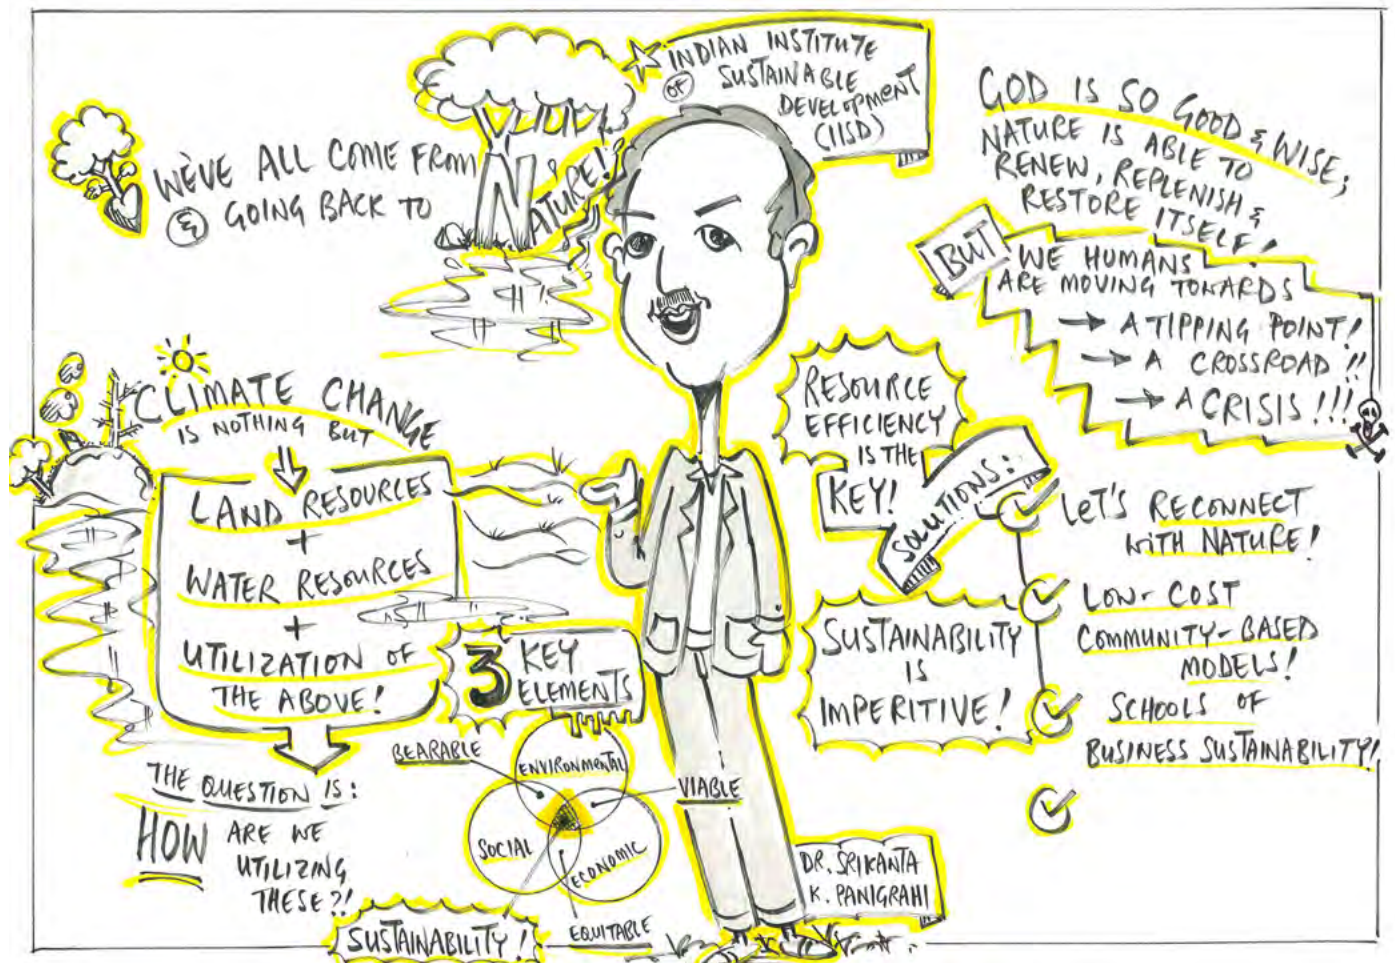 WE'VE ALL COME FROM
& GOING BACK TO
NATURE!
INDIAN INSTITUTE
OF SUSTAINABLE
DEVELOPMENT
(IISD)
GOD IS SO GOOD & WISE;
NATURE IS ABLE TO
RENEW, REPLENISH &
RESTORE ITSELF!
BUT
WE HUMANS
ARE MOVING TOWARDS
→ A TIPPING POINT!
→ A CROSSROAD!!
→ A CRISIS!!!
CLIMATE CHANGE
IS NOTHING BUT
LAND RESOURCES
+
WATER RESOURCES
+
UTILIZATION OF
THE ABOVE!
THE QUESTION IS:
HOW ARE WE
UTILIZING
THESE?!
3 KEY
ELEMENTS
BEARABLE
ENVIRONMENTAL
VIABLE
SOCIAL
ECONOMIC
EQUITABLE
SUSTAINABILITY!
RESOURCE
EFFICIENCY
IS THE
KEY!
SOLUTIONS:
LET'S RECONNECT
WITH NATURE!
LOW-COST
COMMUNITY-BASED
MODELS!
SCHOOLS OF
BUSINESS SUSTAINABILITY!
SUSTAINABILITY
IS
IMPERITIVE!
DR. SRIKANTA
K. PANIGRAHI